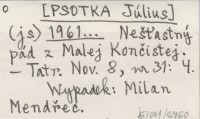 [PSOTKA Július]
(js) 1961... Nešťastný
pád z Malej Končistej.
– Tatr. Nov. 8, nr 31: 4.
Wypadek: Milan
Mendřec.